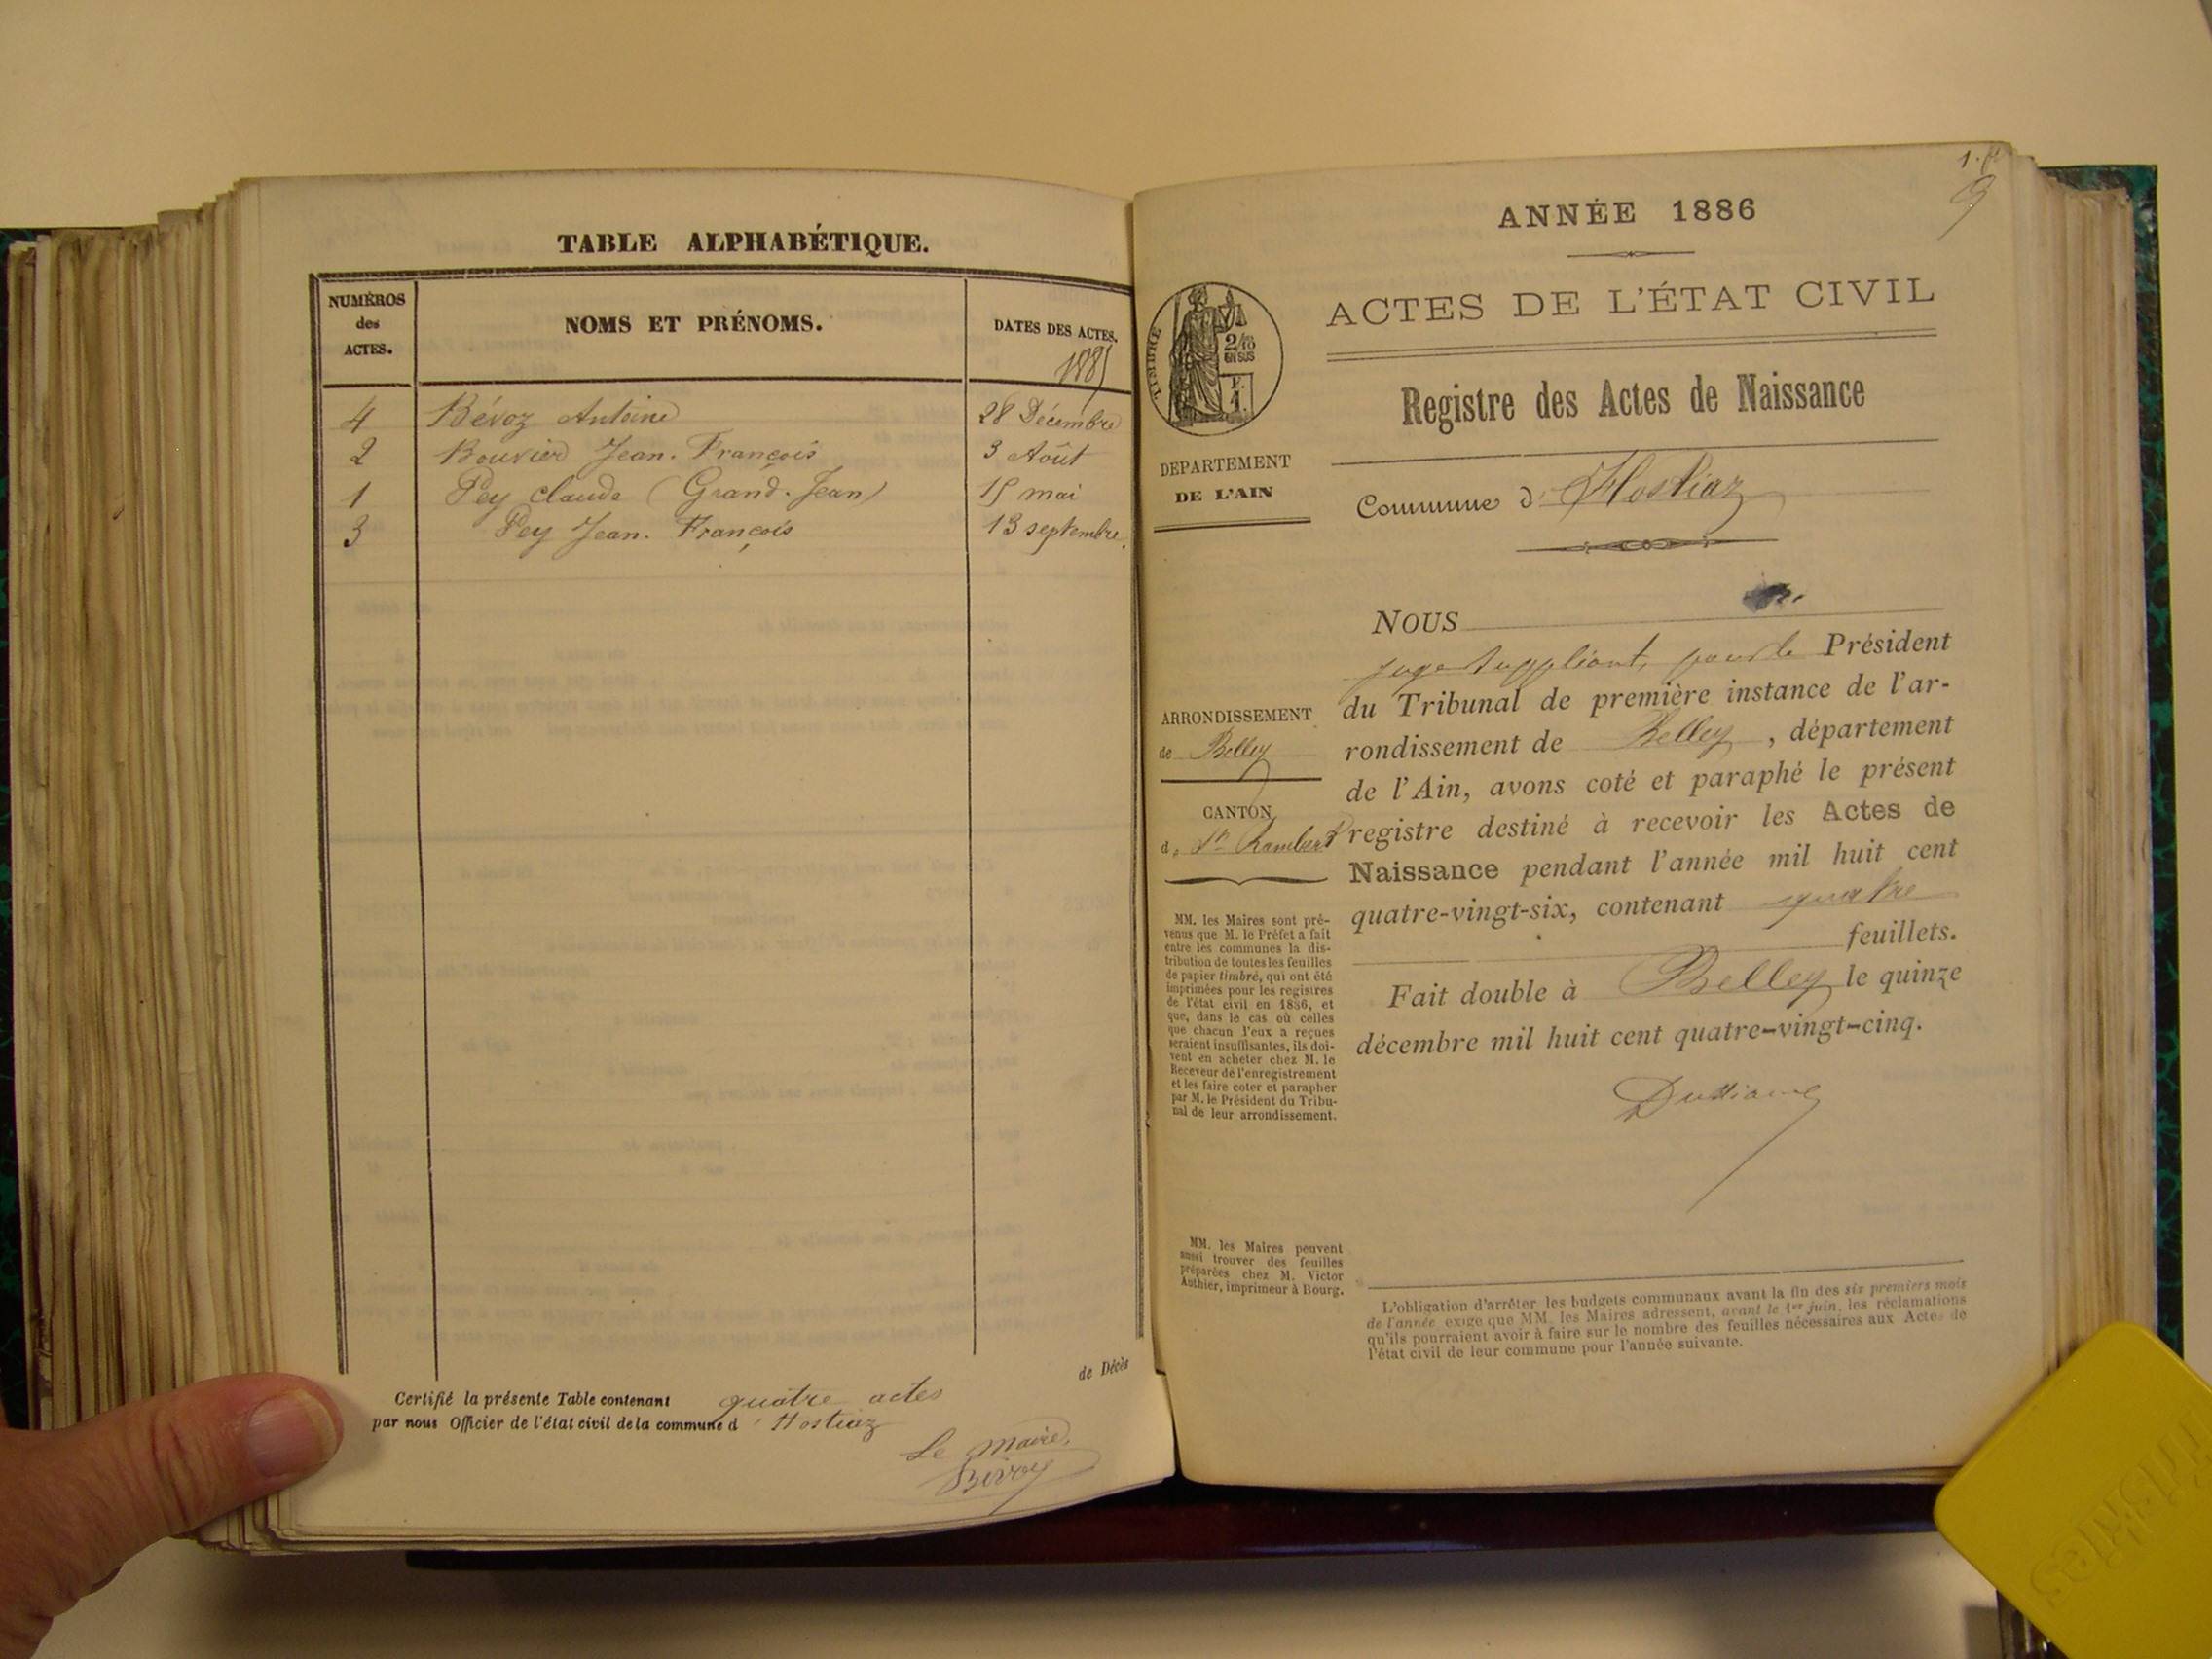 TABLE ALPHABÉTIQUE.
NUMÉROS
des
ACTES.
NOMS ET PRÉNOMS.
DATES DES ACTES.
1885
4 Bévoz Antoine 28 Décembre
2 Bouvier Jean. François 3 Août
1 Pey claude (Grand. Jean) 15 mai
3 Pey Jean. François 13 septembre.
de Décès
Certifié la présente Table contenant quatre actes
par nous Officier de l'état civil de la commune d'Hostiaz
Le Maire,
Bévoz
1.
ANNÉE 1886
ACTES DE L'ÉTAT CIVIL
TIMBRE
2/10
EN SUS
Registre des Actes de Naissance
DEPARTEMENT
DE L'AIN
Commune d'Hostiaz
NOUS
juge suppléant, pour le Président
du Tribunal de première instance de l'ar-
rondissement de Belley, département
de l'Ain, avons coté et paraphé le présent
registre destiné à recevoir les Actes de
Naissance pendant l'année mil huit cent
quatre-vingt-six, contenant quatre
feuillets.
Fait double à Belley le quinze
décembre mil huit cent quatre-vingt-cinq.
ARRONDISSEMENT
de Belley
CANTON
de St Rambert
MM. les Maires sont pré-
venus que M. le Préfet a fait
entre les communes la dis-
tribution de toutes les feuilles
de papier timbré, qui ont été
imprimées pour les registres
de l'état civil en 1886, et
que, dans le cas où celles
que chacun d'eux a reçues
seraient insuffisantes, ils doi-
vent en acheter chez M. le
Receveur de l'enregistrement
et les faire coter et parapher
par M. le Président du Tribu-
nal de leur arrondissement.
MM. les Maires peuvent
aussi trouver des feuilles
préparées chez M. Victor
Authier, imprimeur à Bourg.
L'obligation d'arrêter les budgets communaux avant la fin des six premiers mois
de l'année exige que MM. les Maires adressent, avant le 1er juin, les réclamations
qu'ils pourraient avoir à faire sur le nombre des feuilles nécessaires aux Actes de
l'état civil de leur commune pour l'année suivante.